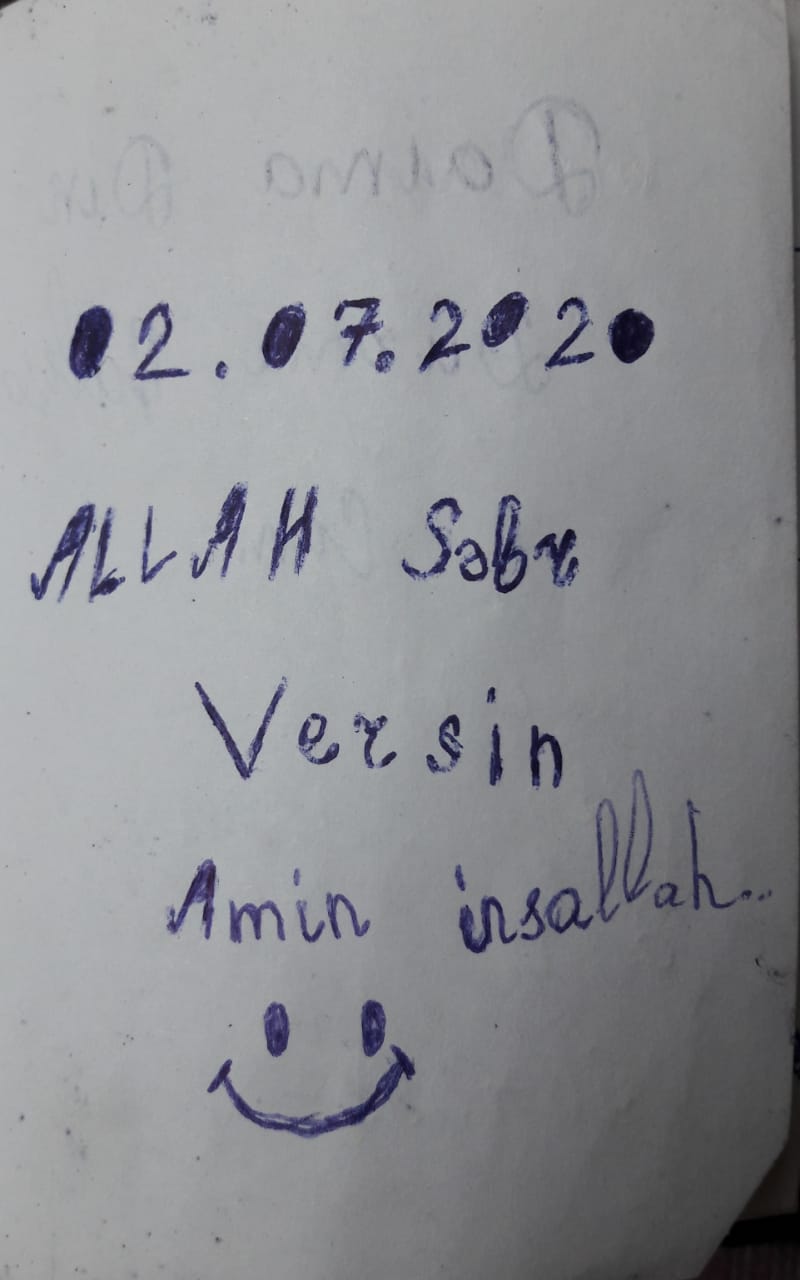 02.07.2020
ALLAH Səbr
Versin
Amin insallah..